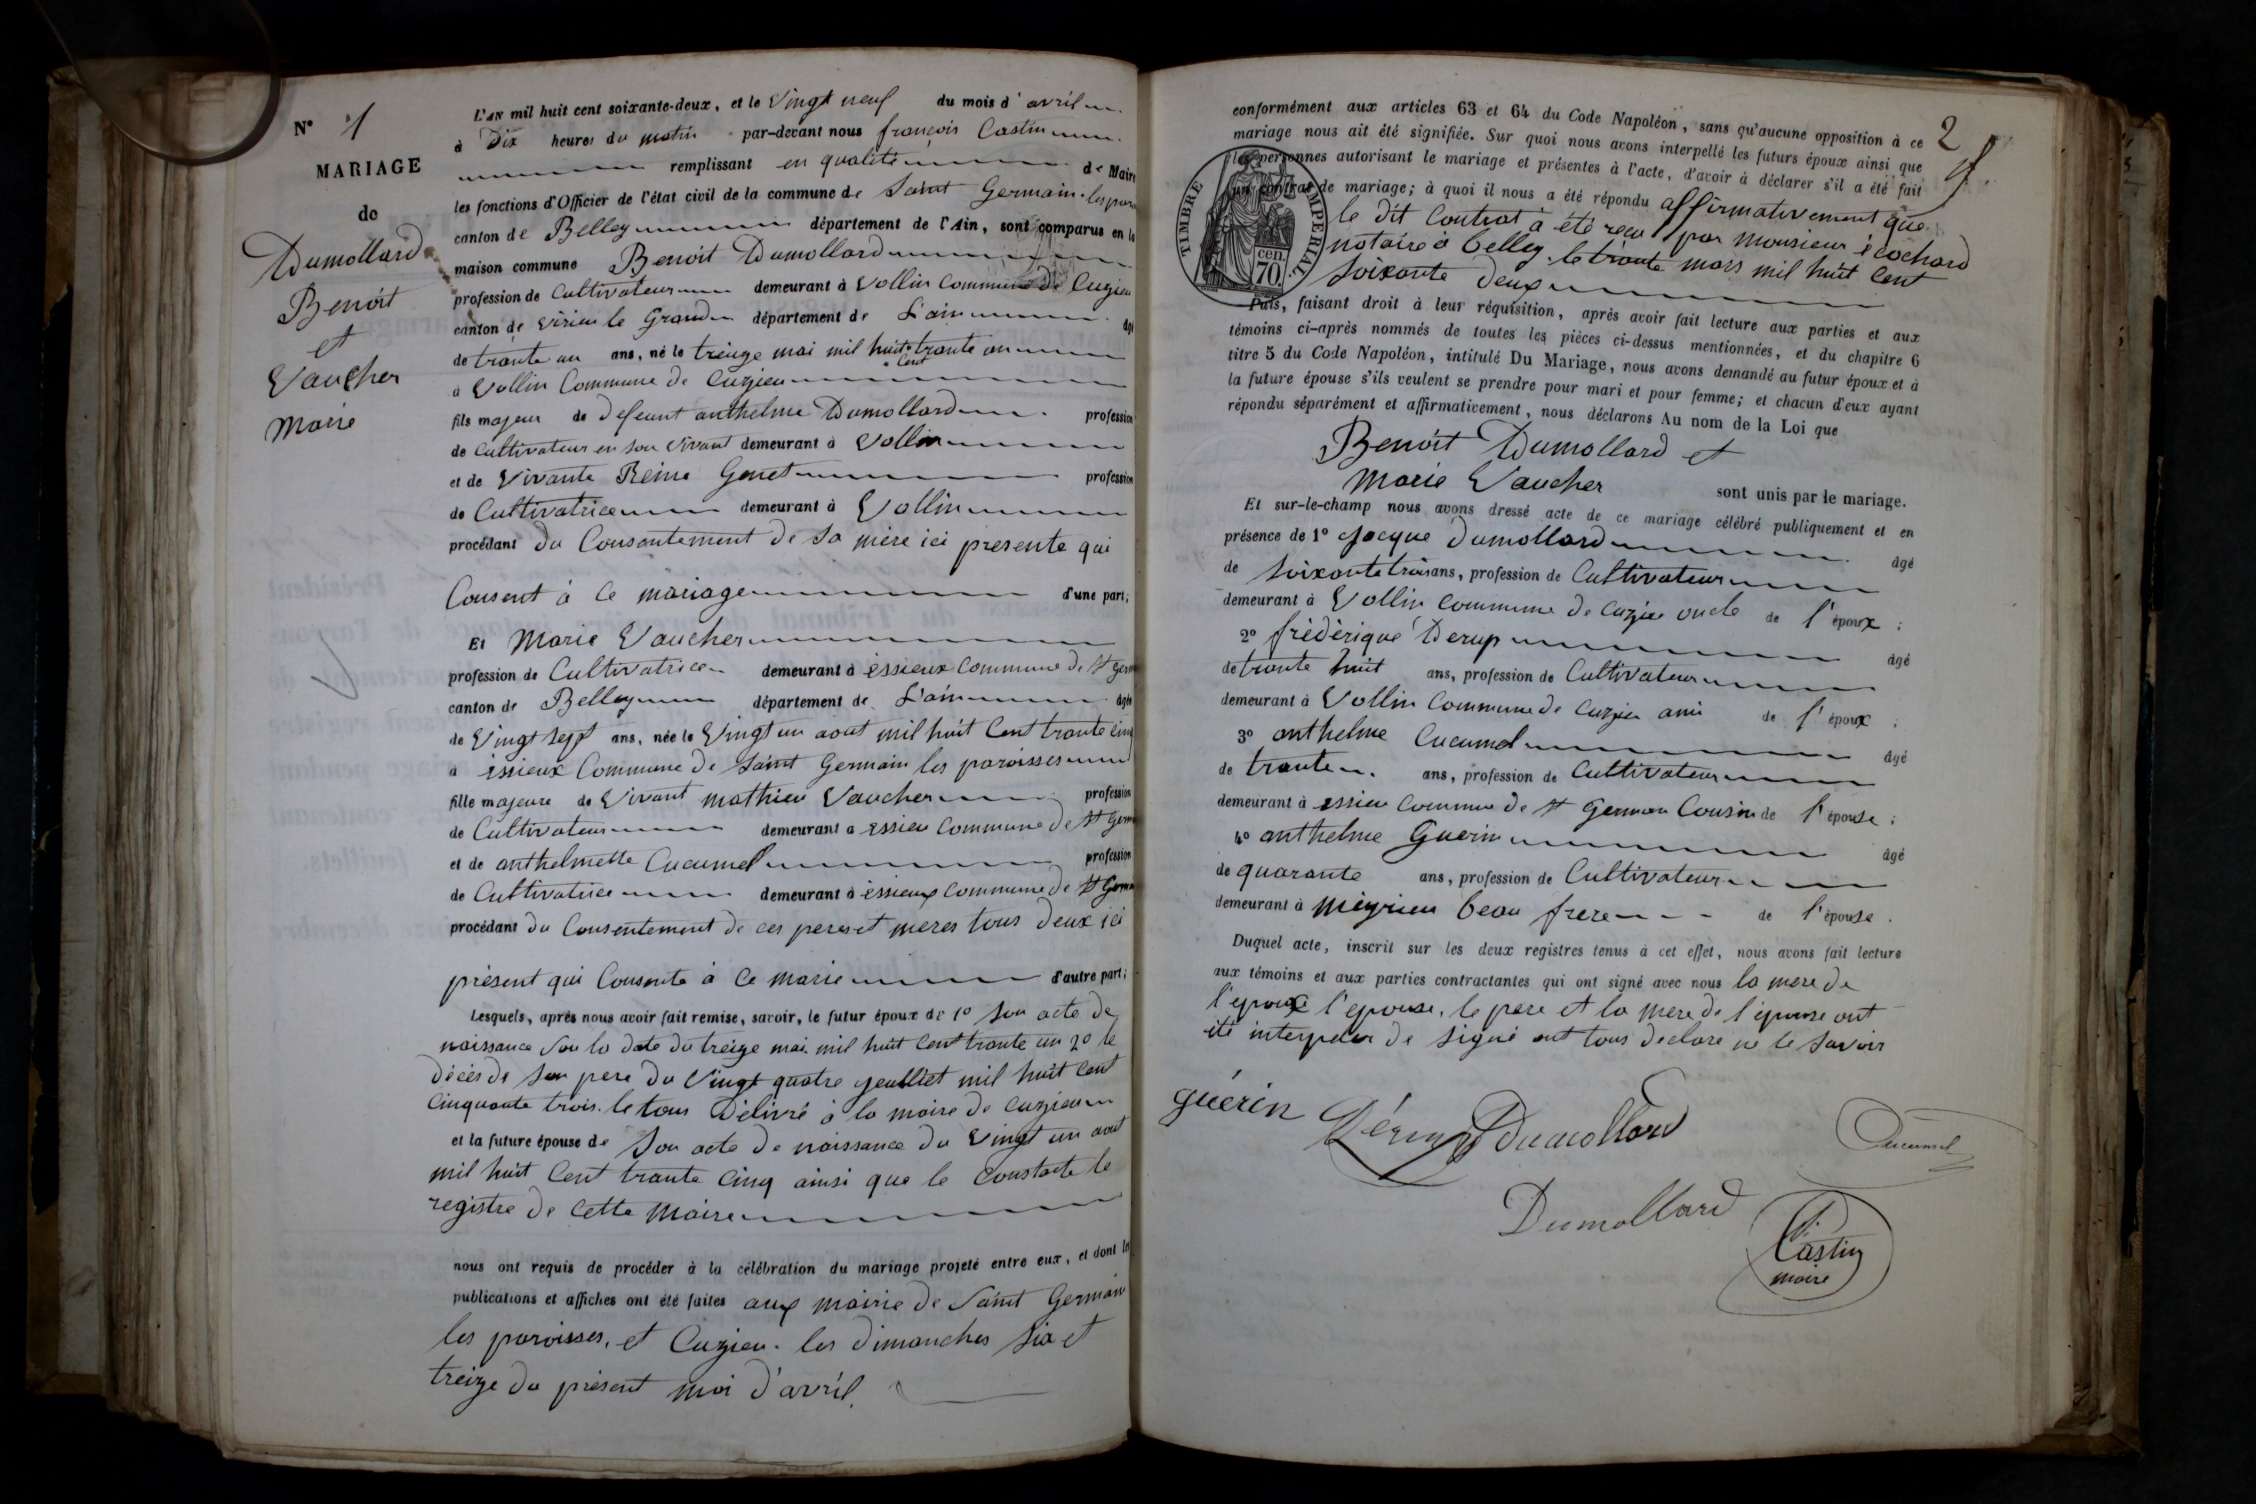 N° 1
MARIAGE
de
Dumollard
Benoit
et
Vaucher
Marie
L'AN mil huit cent soixante-deux, et le Vingt neuf du mois d'avril
à Dix heures du matin par-devant nous françois Castin
remplissant en qualité de Maire
les fonctions d'Officier de l'état civil de la commune de Saint Germain les paro
canton de Belley département de l'Ain, sont comparus en la
maison commune Benoit Dumollard
profession de Cultivateur demeurant à Vollin Commune de Cuzieu
canton de virieu le Grand département de L'ain âgé
de trante un ans, né le treize mai mil huit cent trante un
à Vollin Commune de Cuzieu
fils majeur de defeunt anthelme Dumollard profession
de Cultivateur en son vivant demeurant à Vollin
et de Vivante Reine Genet profession
de Cultivatrice demeurant à Vollin
procédant du Consentement de sa mère ici presente qui
Consent à Ce mariage d'une part;
Et Marie Vaucher
profession de Cultivatrice demeurant à essieux Commune de St Germ
canton de Belley département de L'ain âgée
de Vingt sept ans, née le Vingt un aout mil huit Cent trante cinq
à essieux Commune de Saint Germain les paroisses
fille majeure de Vivant mathieu Vaucher profession
de Cultivateur demeurant à essieu Commune de St Germ
et de anthelmette Cucumel profession
de Cultivatrice demeurant à essieux Commune de St Germ
procédant du Consentement de ces peres et meres tous deux ici
présent qui Consente à Ce marie d'autre part;
Lesquels, après nous avoir fait remise, savoir, le futur époux de 1° son acte de
naissance sou la date du treize mai mil huit Cent trante un 2° le
décès de son pere du Vingt quatre jeulliet mil huit Cent
Cinquante trois. le tous délivré à la maire de Cuzieu
et la future épouse de son acte de naissance du Vingt un aout
mil huit Cent trante Cinq ainsi que le Constate le
registre de Cette Maire
nous ont requis de procéder à la célébration du mariage projeté entre eux, et dont les
publications et affiches ont été faites aux mairie de Saint Germain
les paroisses, et Cuzieu. les dimanches Six et
treize du présent moi d'avril.
2
conformément aux articles 63 et 64 du Code Napoléon, sans qu'aucune opposition à ce
mariage nous ait été signifiée. Sur quoi nous avons interpellé les futurs époux ainsi que
les personnes autorisant le mariage et présentes à l'acte, d'avoir à déclarer s'il a été fait
un contrat de mariage; à quoi il nous a été répondu affirmativement que
le dit Contrat à été reçu par monsieur écochard
notaire à belley. le trante mars mil huit Cent
Soixante deux
TIMBRE IMPÉRIAL
70 cen.
Puis, faisant droit à leur réquisition, après avoir fait lecture aux parties et aux
témoins ci-après nommés de toutes les pièces ci-dessus mentionnées, et du chapitre 6
titre 5 du Code Napoléon, intitulé Du Mariage, nous avons demandé au futur époux et à
la future épouse s'ils veulent se prendre pour mari et pour femme; et chacun d'eux ayant
répondu séparément et affirmativement, nous déclarons Au nom de la Loi que
Benoit Dumollard et
Marie Vaucher sont unis par le mariage.
Et sur-le-champ nous avons dressé acte de ce mariage célébré publiquement et en
présence de 1° Jacque Dumollard âgé
de Soixante trois ans, profession de Cultivateur
demeurant à Vollin Commune de Cuzieu oncle de l'époux;
2° frédérique Derup âgé
de trante huit ans, profession de Cultivateur
demeurant à Vollin Commune de Cuzieu ami de l'époux;
3° anthelme Cucumel âgé
de trante ans, profession de Cultivateur
demeurant à essieu Commune de St Germain Cousin de l'épouse;
4° anthelme Guerin âgé
de quarante ans, profession de Cultivateur
demeurant à meyrieu beau frere de l'épouse.
Duquel acte, inscrit sur les deux registres tenus à cet effet, nous avons fait lecture
aux témoins et aux parties contractantes qui ont signé avec nous la mere de
l'epoux l'epouse, le pere et la mere de l'epouse ont
été interpeler de signé ont tous declare ne le savoir
guérin Dérup Dumollard Cucumel
Dumollard
Castin
maire